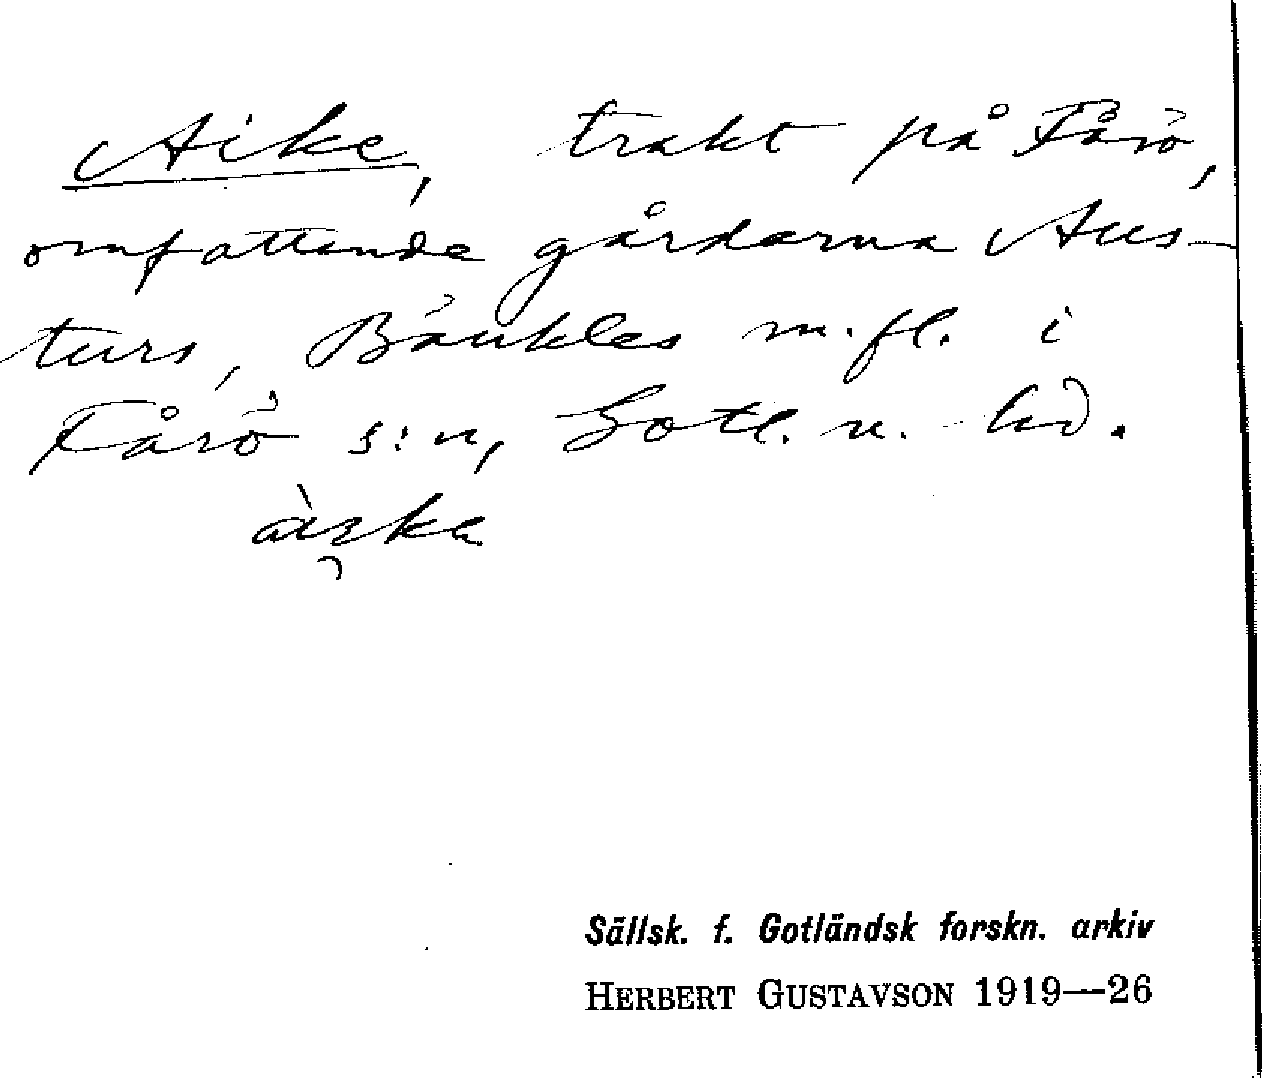 Aike, trakt på Fårö,
omfattande gårdarna Aus-
turs, Bäukles m.fl. i
Fårö s:n, Gotl. n. hd.
Sällsk. f. Gotländsk forskn. arkiv
HERBERT GUSTAVSON 1919—26